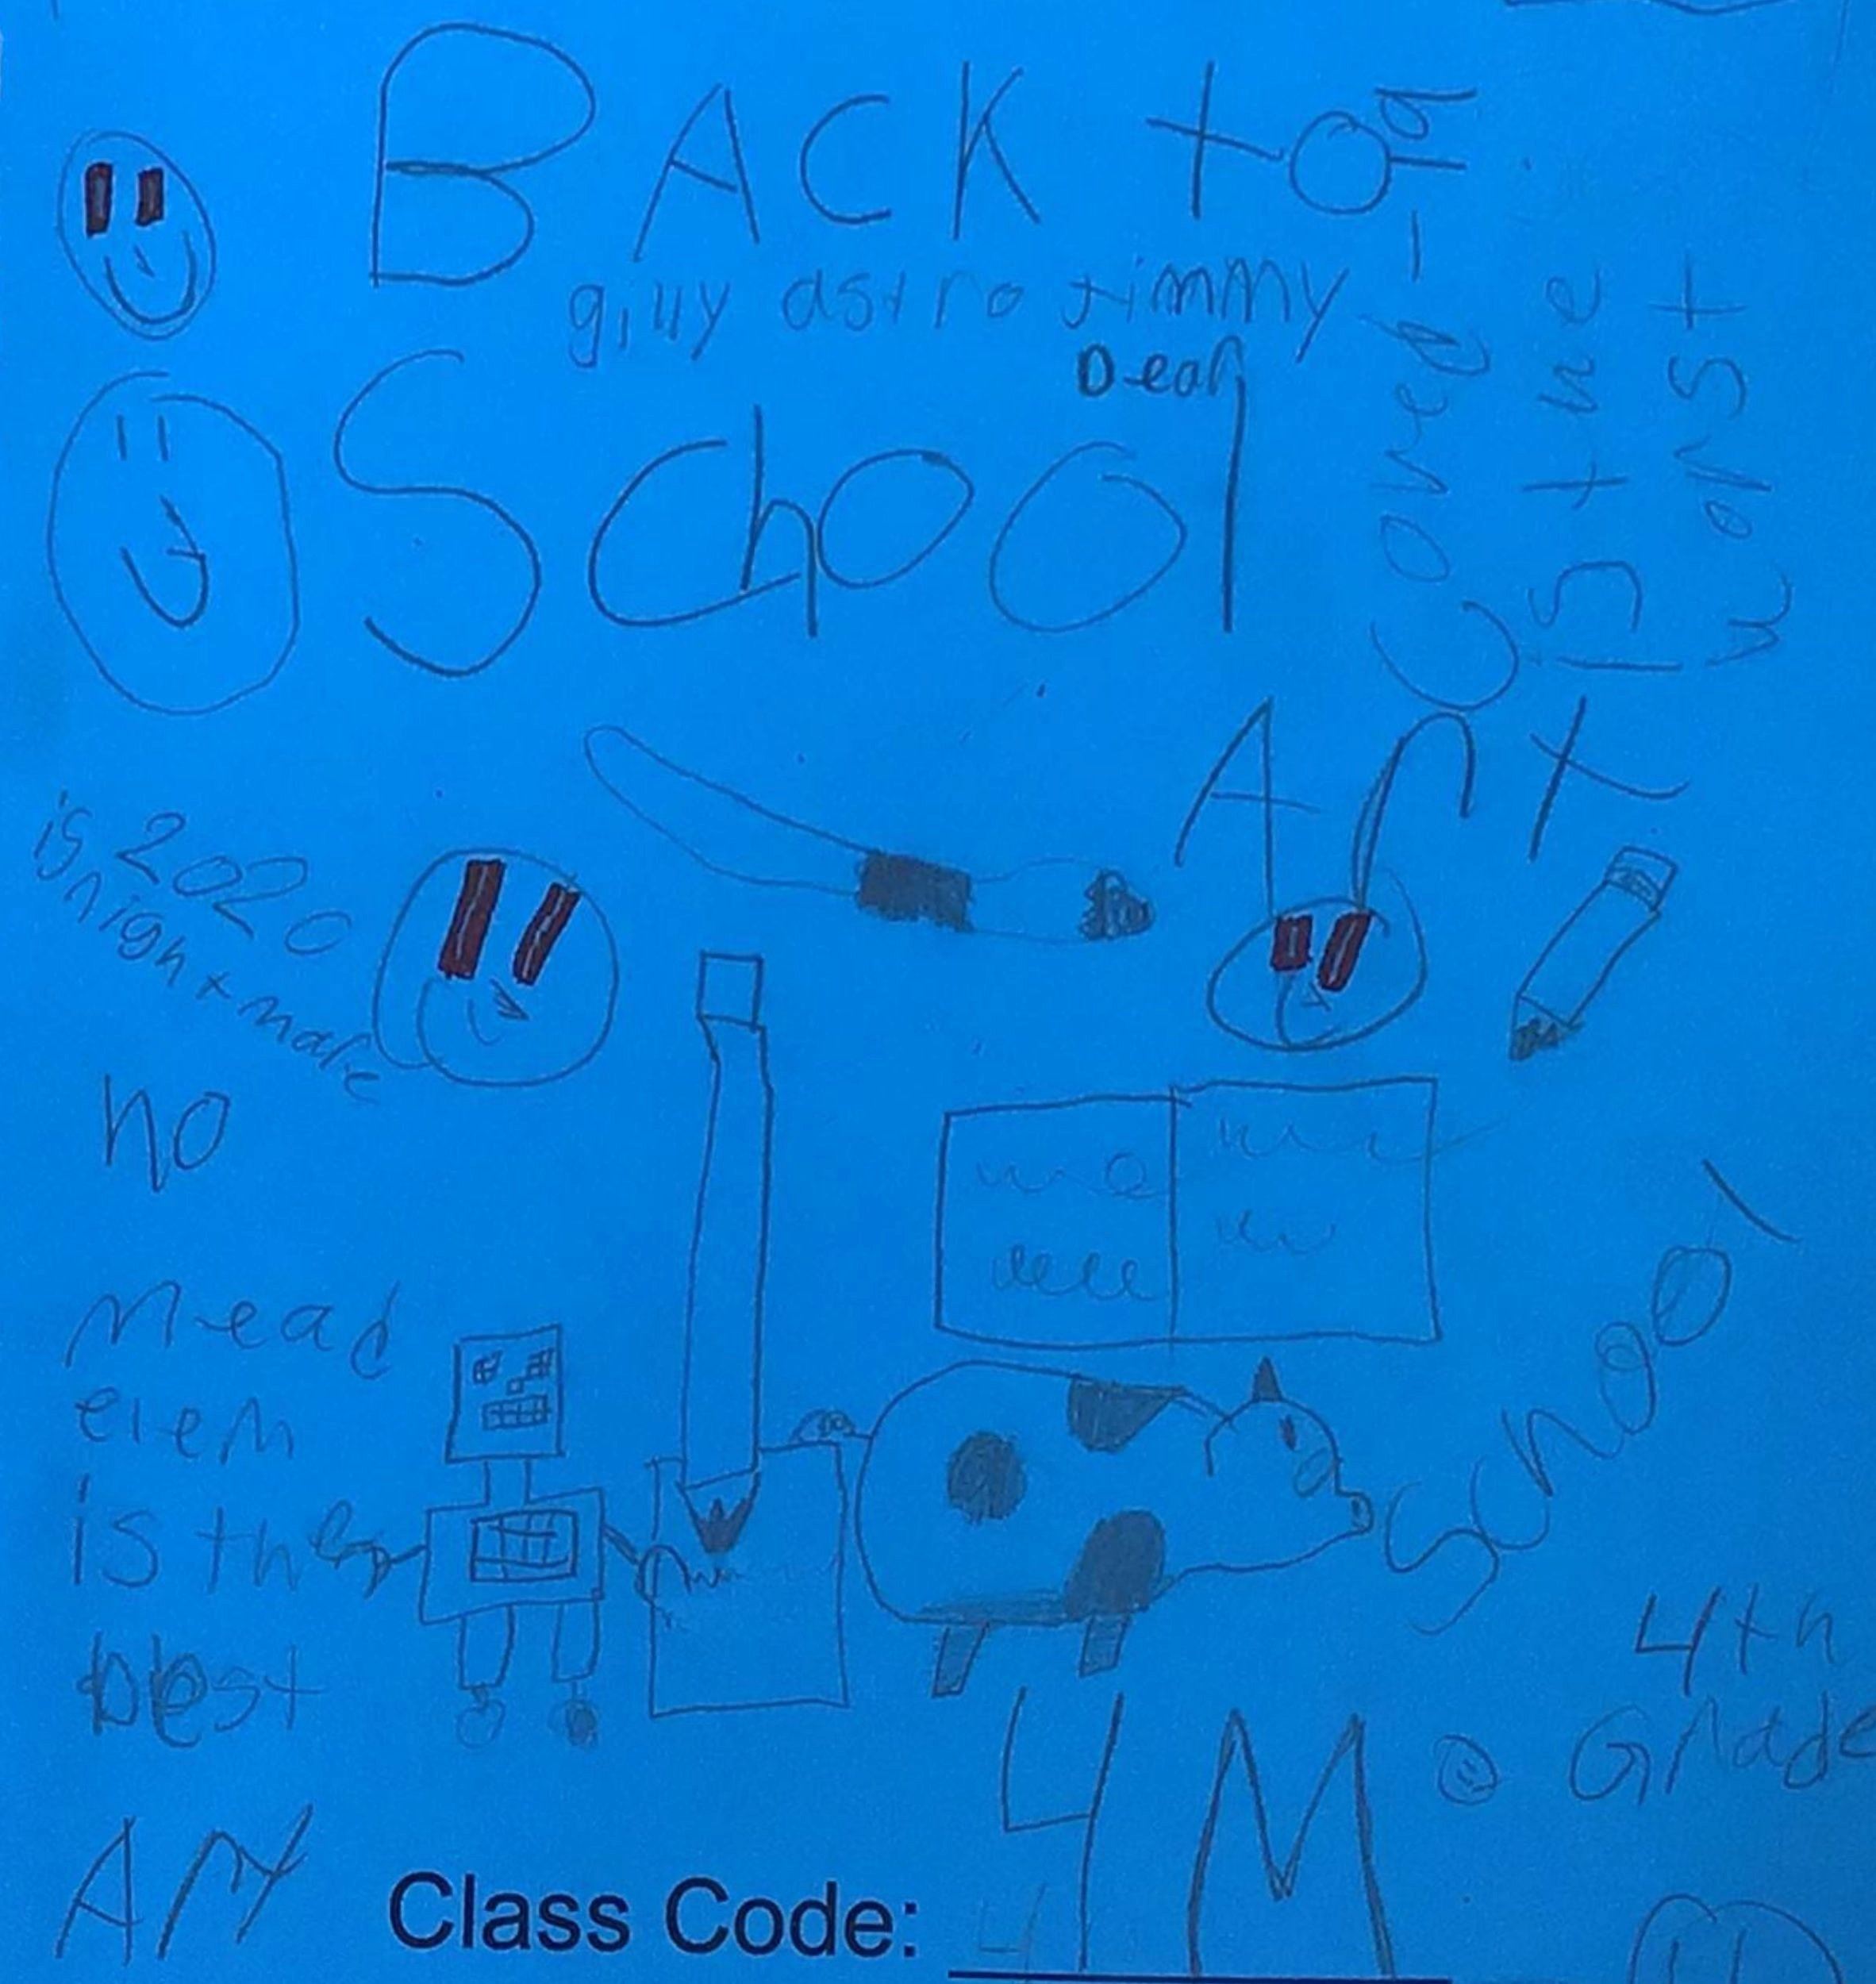 BACK to
gilly astro Jimmy
Dean
School
Coved-19
is the
worst
Art
2020
is night mare
no
Mead
elem
is the
best
School
4th
Grade
4M
Art
Class Code: